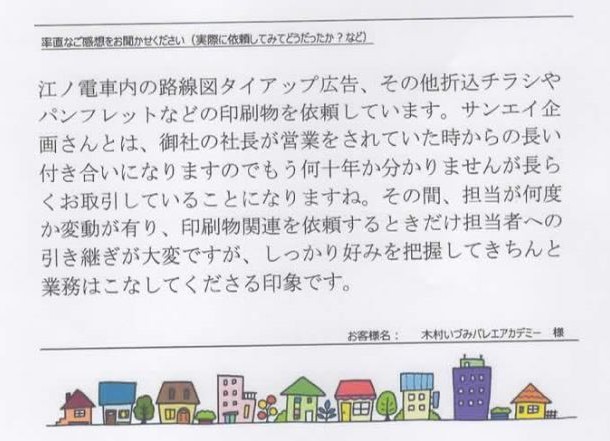 率直なご感想をお聞かせください（実際に依頼してみてどうだったか？など）
江ノ電車内の路線図タイアップ広告、その他折込チラシや
パンフレットなどの印刷物を依頼しています。サンエイ企
画さんとは、御社の社長が営業をされていた時からの長い
付き合いになりますのでもう何十年か分かりませんが長ら
くお取引していることになりますね。その間、担当が何度
か変動が有り、印刷物関連を依頼するときだけ担当者への
引き継ぎが大変ですが、しっかり好みを把握してきちんと
業務はこなしてくださる印象です。
お客様名： 木村いづみバレエアカデミー 様